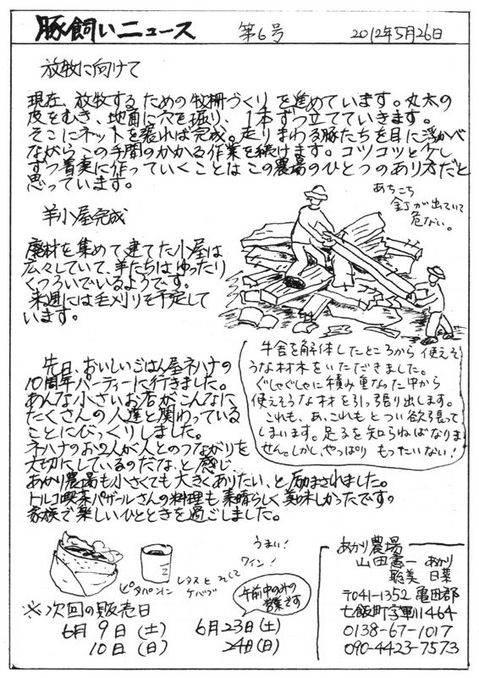 豚飼いニュース 第6号 2012年5月26日
放牧に向けて
現在、放牧するための牧柵づくりを進めています。丸太の
皮をむき、地面に穴を掘り、1本ずつ立てていきます。
そこにネットを張れば完成。走りまわる豚たちを目に浮かべ
ながらこの手間のかかる作業を続けます。コツコツと少し
ずつ着実に作っていくことはこの農場のひとつのあり方だと
思っています。
あちこち
釘が出ていて
危ない。
羊小屋完成
廃材を集めて建てた小屋は
広々としていて、羊たちはゆったり
くつろいでいるようです。
来週には毛刈りを予定して
います。
牛舎を解体したところから使えそ
うな材木をいただきました。
ぐしゃぐしゃに積み重なった中から
使えそうな材を引っ張り出します。
これも、あ、これもとつい欲張って
しまいます。足るを知らねばなりま
せん。しかし、やっぱりもったいない!
先日、おいしいごはん屋ネハナの
10周年パーティーに行きました。
あんな小さいお店がこんなに
たくさんの人達と関わっている
ことにびっくりしました。
ネハナのお2人が人とのつながりを
大切にしているのだな、と感じ
あかり農場も小さくても大きくありたい、と励まされました。
トルコ喫茶パザールさんの料理も素晴らしく美味しかったです。
家族で楽しいひとときを過ごしました。
うまい!
ワイン!
ピタパンイン
レタスとそして
ケバブ
午前中のみの
営業です
※次回の販売日
6月9日(土) 6月23日(土)
10日(日) 24日(日)
あかり農場
山田憲一 あかり
聡美 日菜
〒041-1352 亀田郡
七飯町字軍川464
0138-67-1017
090-4423-7573